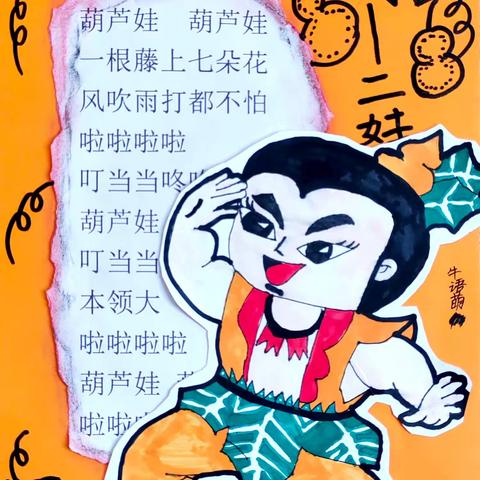 葫芦娃 葫芦娃
一根藤上七朵花
风吹雨打都不怕
啦啦啦啦
叮当当咚
葫芦娃
叮当当
本领大
啦啦啦啦
葫芦娃
啦啦
二娃
牛语萌